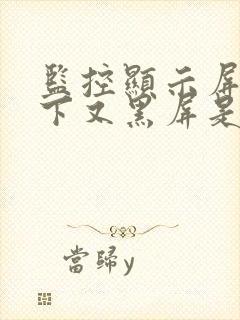 監控顯示屏
下又黑屏是
當歸y